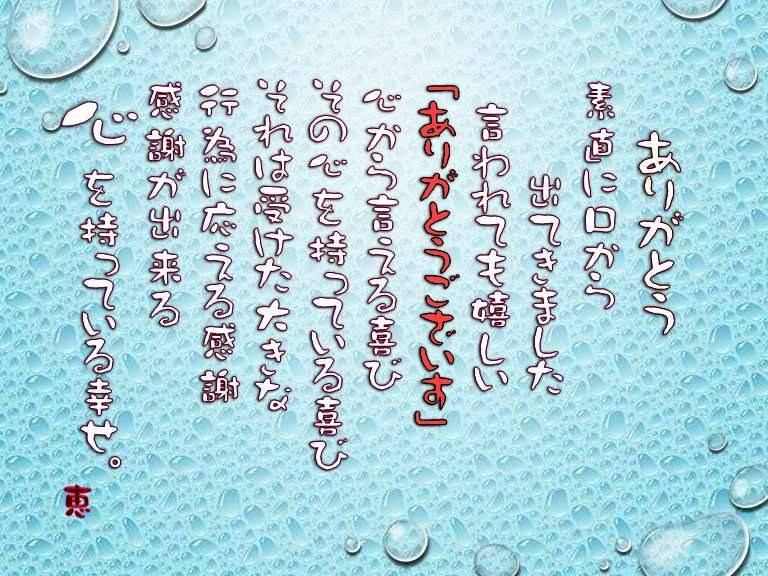 ありがとう
素直に口から
出てきました
言われても嬉しい
「ありがとうございす」
心から言える喜び
その心を持っている喜び
それは受けた大きな
行為に応える感謝
感謝が出来る
心を持っている幸せ。
恵